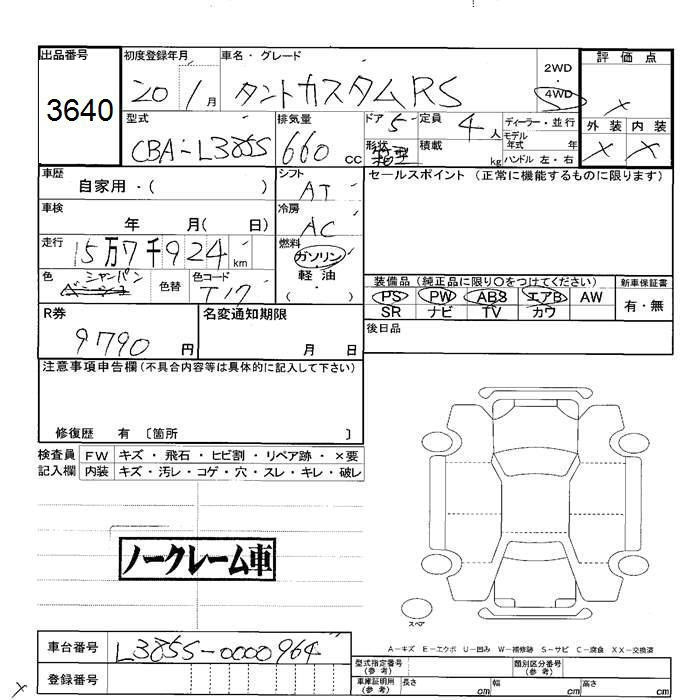 出品番号 初度登録年月 車名・グレード 2WD 評価点
3640 20 1月 タントカスタムRS 4WD ×
型式 排気量 ドア 5 定員 4人 ディーラー・並行 外装 内装
CBA-L385S 660cc 形状 積載 kg モデル年式 年 × ×
ハンドル 左・右
車歴 自家用・( ) シフト AT セールスポイント (正常に機能するものに限ります)
車検 年 月( 日) 冷房 AC
走行 15万7千924km 燃料 ガソリン
色 シャンパン 色替 色コード T17 軽油 ( ) 装備品(純正品に限り○をつけてください) 新車保証書
PS PW ABS エアB AW 有・無
R券 名変通知期限 SR ナビ TV カワ
9790円 月 日 後日品
注意事項申告欄(不具合内容等は具体的に記入して下さい)
修復歴 有 〔箇所 〕
検査員 FW キズ・飛石・ヒビ割・リペア跡・×要
記入欄 内装 キズ・汚レ・コゲ・穴・スレ・キレ・破レ
ノークレーム車
スペア
車台番号 L385S-0000964
A-キズ E-エクボ U-凹み W-補修跡 S-サビ C-腐食 XX-交換済
登録番号 型式指定番号(参考) 類別区分番号(参考)
× 車庫証明用(参考) 長さ cm 幅 cm 高さ cm